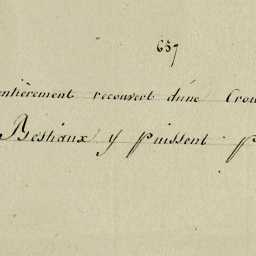 637
entièrement recouvert d'une Crou
Bestiaux y puissent p